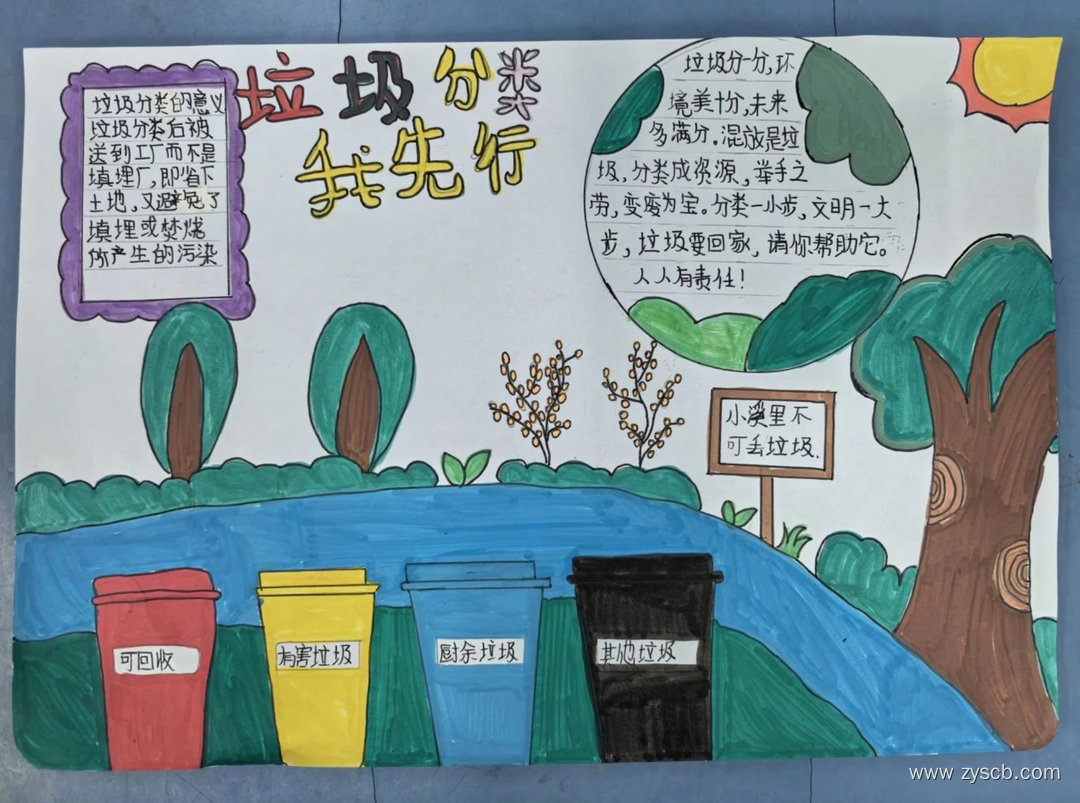 垃圾分类
我先行
垃圾分类的意义
垃圾分类后被
送到工厂而不是
填埋厂,即省下
土地,又避免了
填埋或焚烧
所产生的污染
垃圾分一分,环
境美十分,未来
多满分。混放是垃
圾,分类成资源,举手之
劳,变废为宝。分类一小步,文明一大
步,垃圾要回家,请你帮助它。
人人有责任!
小溪里不
可丢垃圾.
可回收
有害垃圾
厨余垃圾
其他垃圾
www.zyscb.com